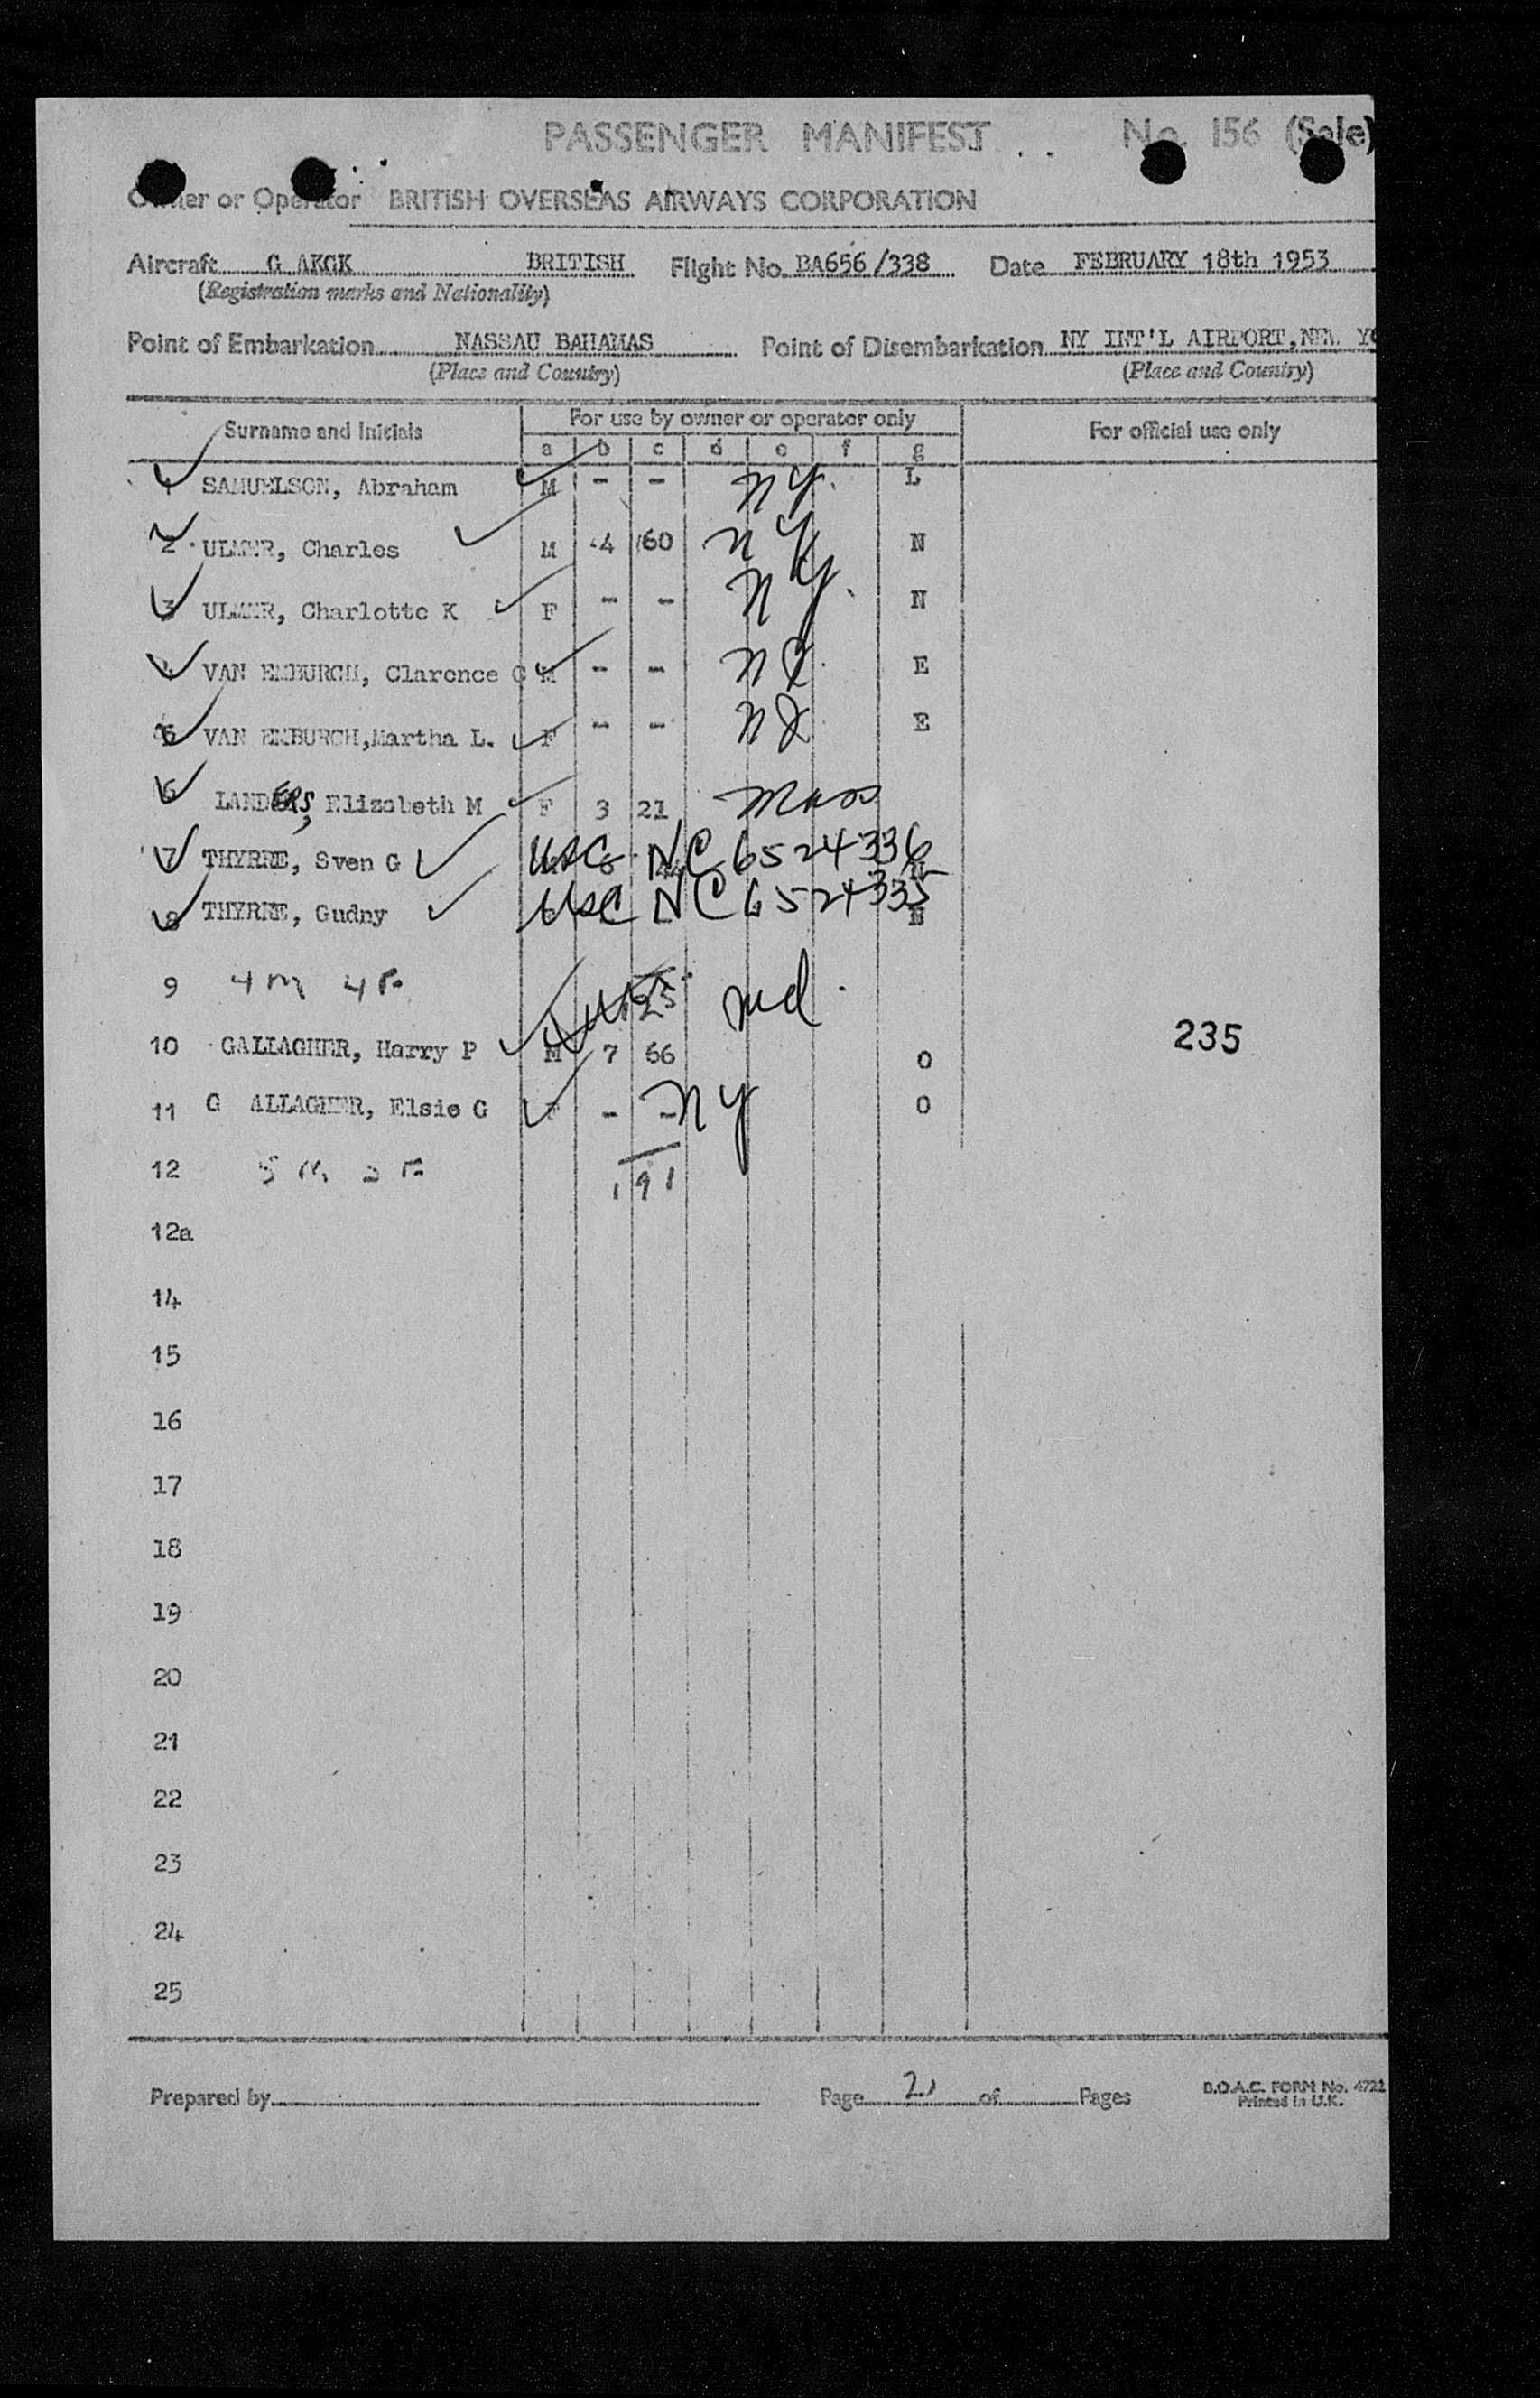 PASSENGER MANIFEST No. 156 (Sale)
Owner or Operator BRITISH OVERSEAS AIRWAYS CORPORATION
Aircraft G AKGK BRITISH Flight No. BA656/338 Date FEBRUARY 18th 1953
(Registration marks and Nationality)
Point of Embarkation NASSAU BAHAMAS Point of Disembarkation NY INT'L AIRPORT, NEW YO
(Place and Country) (Place and Country)
Surname and Initials For use by owner or operator only For official use only
a b c d e f g
1 SAMUELSON, Abraham M - - NY. L
2 ULMER, Charles M 4 60 NY N
3 ULMER, Charlotte K F - - NY. N
4 VAN EMBURGH, Clarence C M - - NJ. E
5 VAN EMBURGH, Martha L. F - - NJ E
6 LANDERS, Elizabeth M F 3 21 Mass
7 THYRRE, Sven G USC NC 6524336
8 THYRRE, Gudny USC NC 6524335 N
9 4 M 4 F
125 Md.
10 GALLAGHER, Harry P M 7 66 O 235
11 G ALLAGHER, Elsie G F - - NY O
12 5 M 5 F 191
12a
14
15
16
17
18
19
20
21
22
23
24
25
Prepared by Page 2 of Pages B.O.A.C. FORM No. 4722
Printed in U.K.